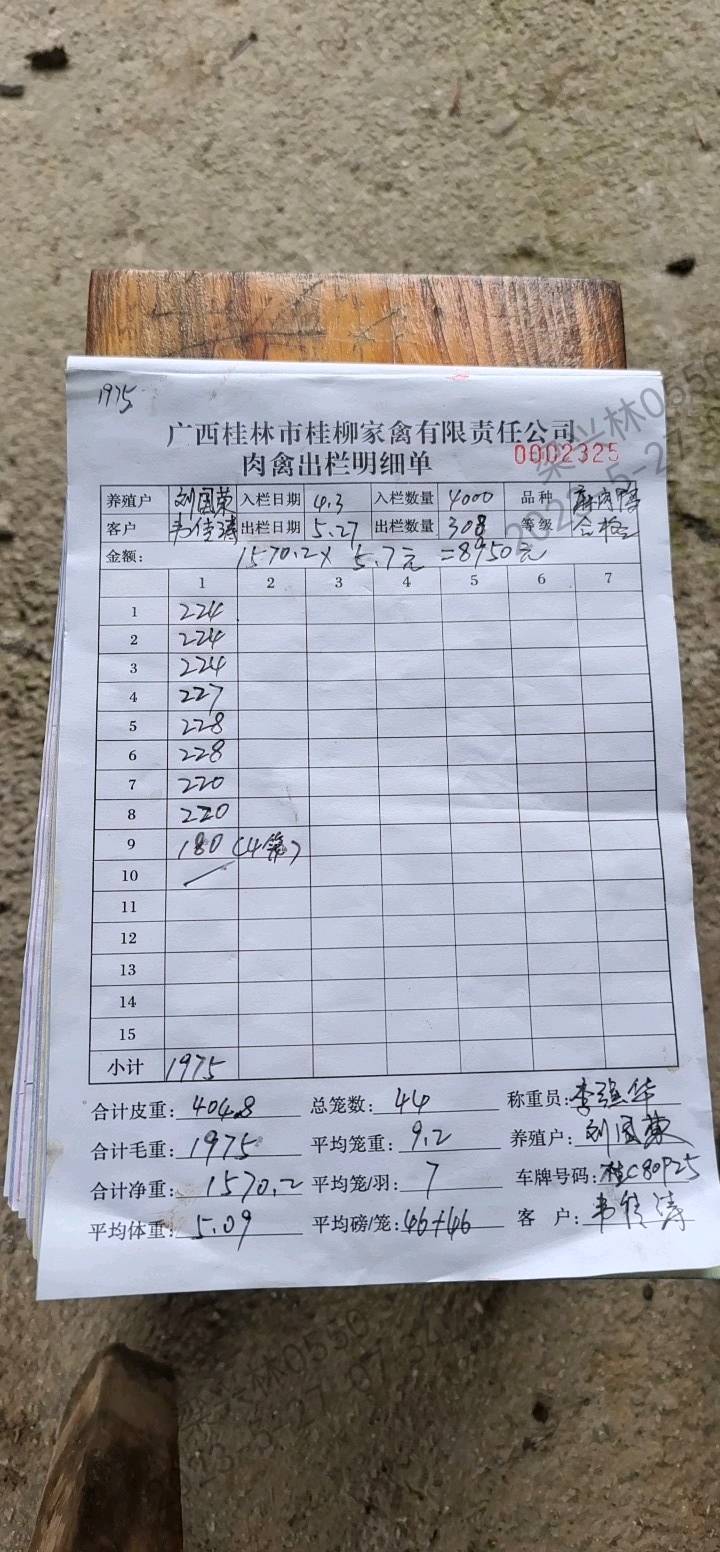 1975
广西桂林市桂柳家禽有限责任公司
肉禽出栏明细单 0002325
养殖户 刘国荣 入栏日期 4.3 入栏数量 4000 品种 麻肉鸭
客户 韦佳涛 出栏日期 5.27 出栏数量 308 等级 合格
金额: 1570.2× 5.7元 =8950元
1 2 3 4 5 6 7
1 224
2 224
3 224
4 227
5 228
6 228
7 220
8 220
9 180 (4笼)
10
11
12
13
14
15
小计 1975
合计皮重: 404.8 总笼数: 44 称重员: 李强华
合计毛重: 1975 平均笼重: 9.2 养殖户: 刘国荣
合计净重: 1570.2 平均笼/羽: 7 车牌号码: 桂C80P25
平均体重: 5.09 平均磅/笼: 46+46 客 户: 韦佳涛